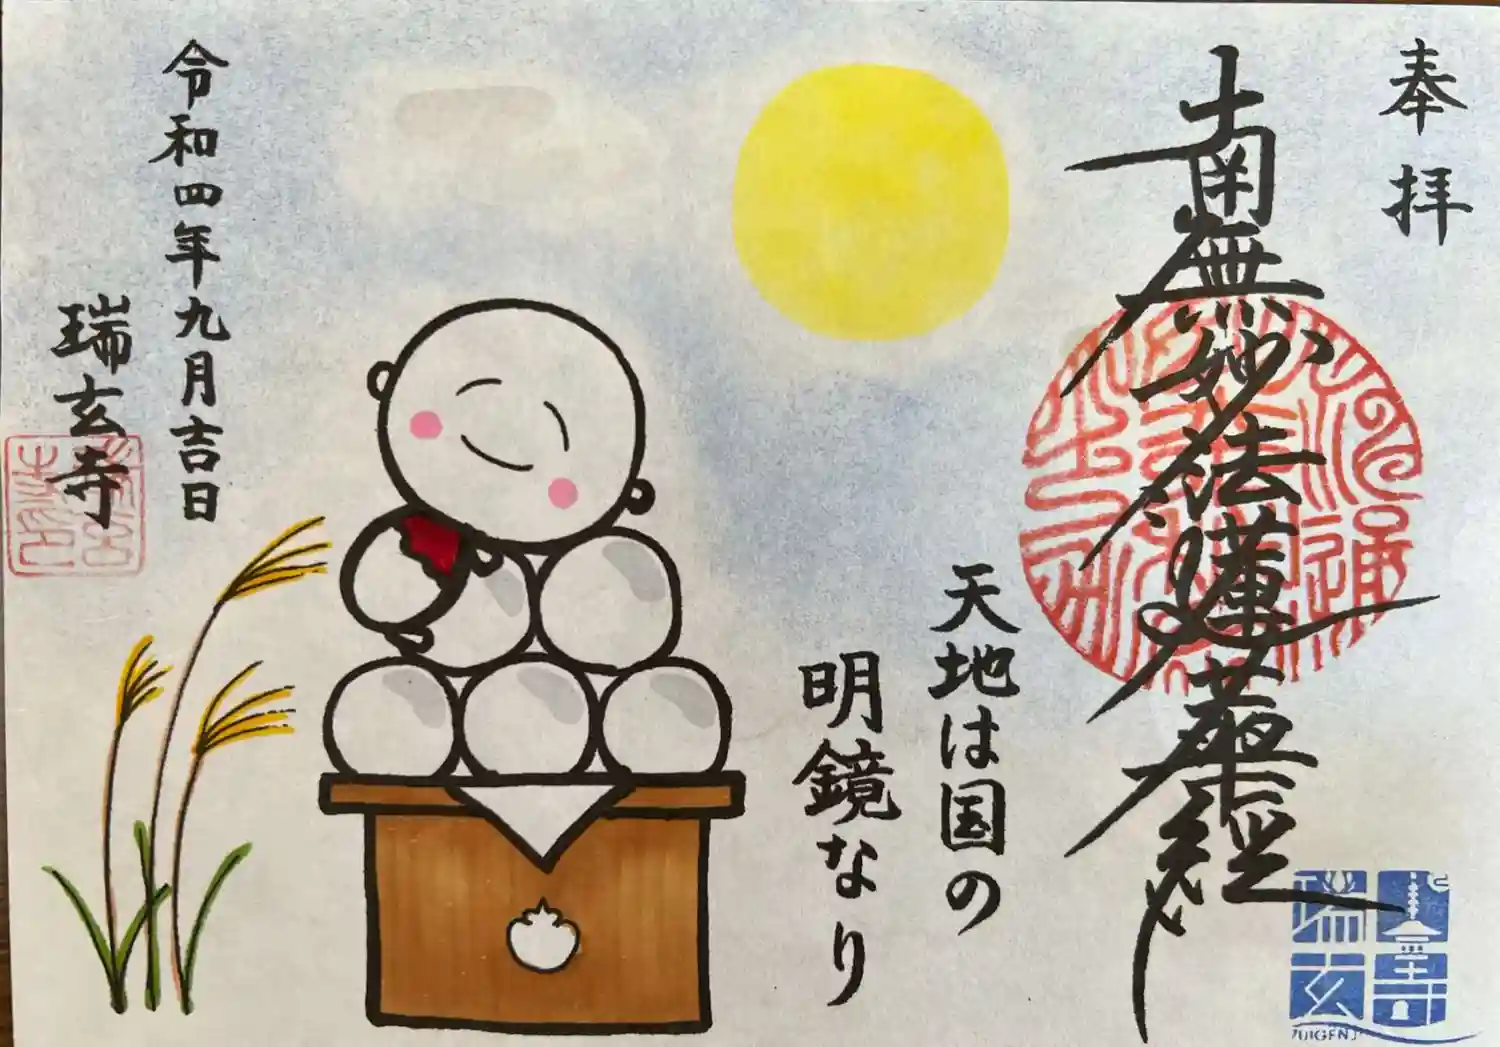 奉拝
南無妙法蓮華経
天地は国の
明鏡なり
令和四年九月吉日
瑞玄寺
瑞玄寺
ZUIGENJI